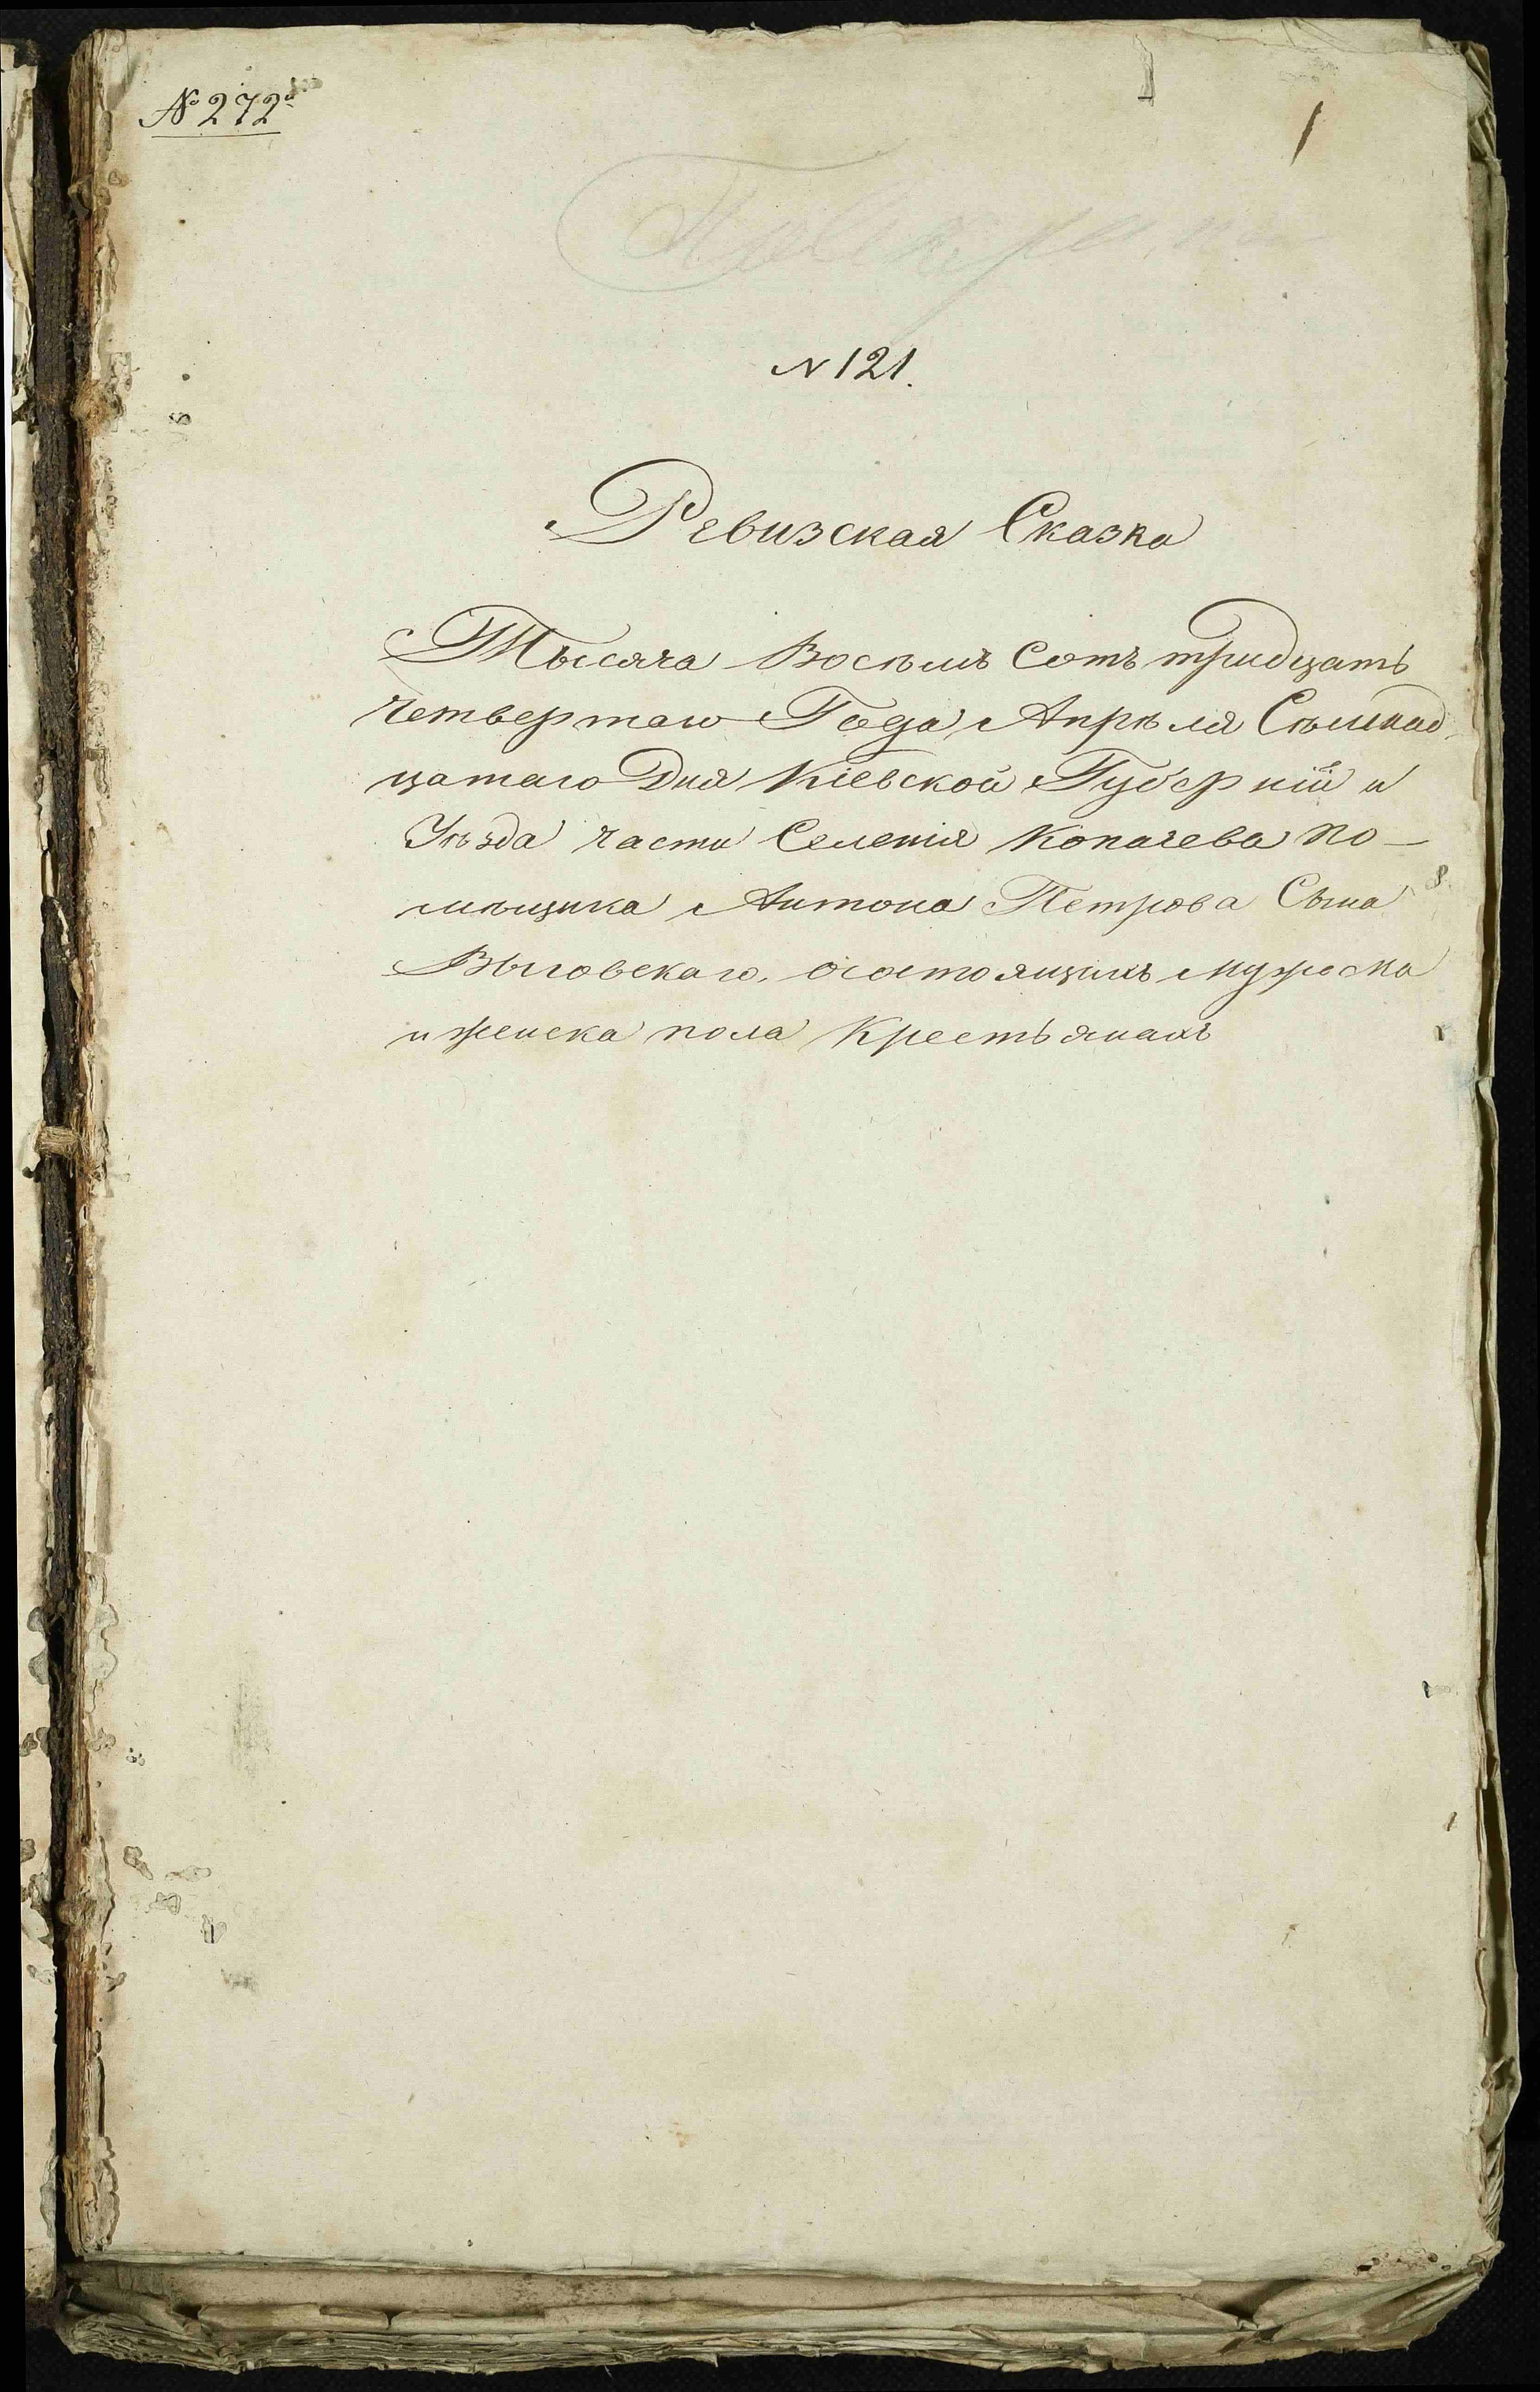 № 272й
1
N 121.
Ревизская Сказка
Тысяча Восѣмъ Сотъ тридцать
четвертаго Года Апрѣля Сѣмнад
цатаго Дня Кіевской Губерніи и
Уѣзда части Селенія Копачева по-
мѣщика Антона Петрова Сына
Выговскаго, осостоящихъ мужеска
и женска пола Крестьянахъ